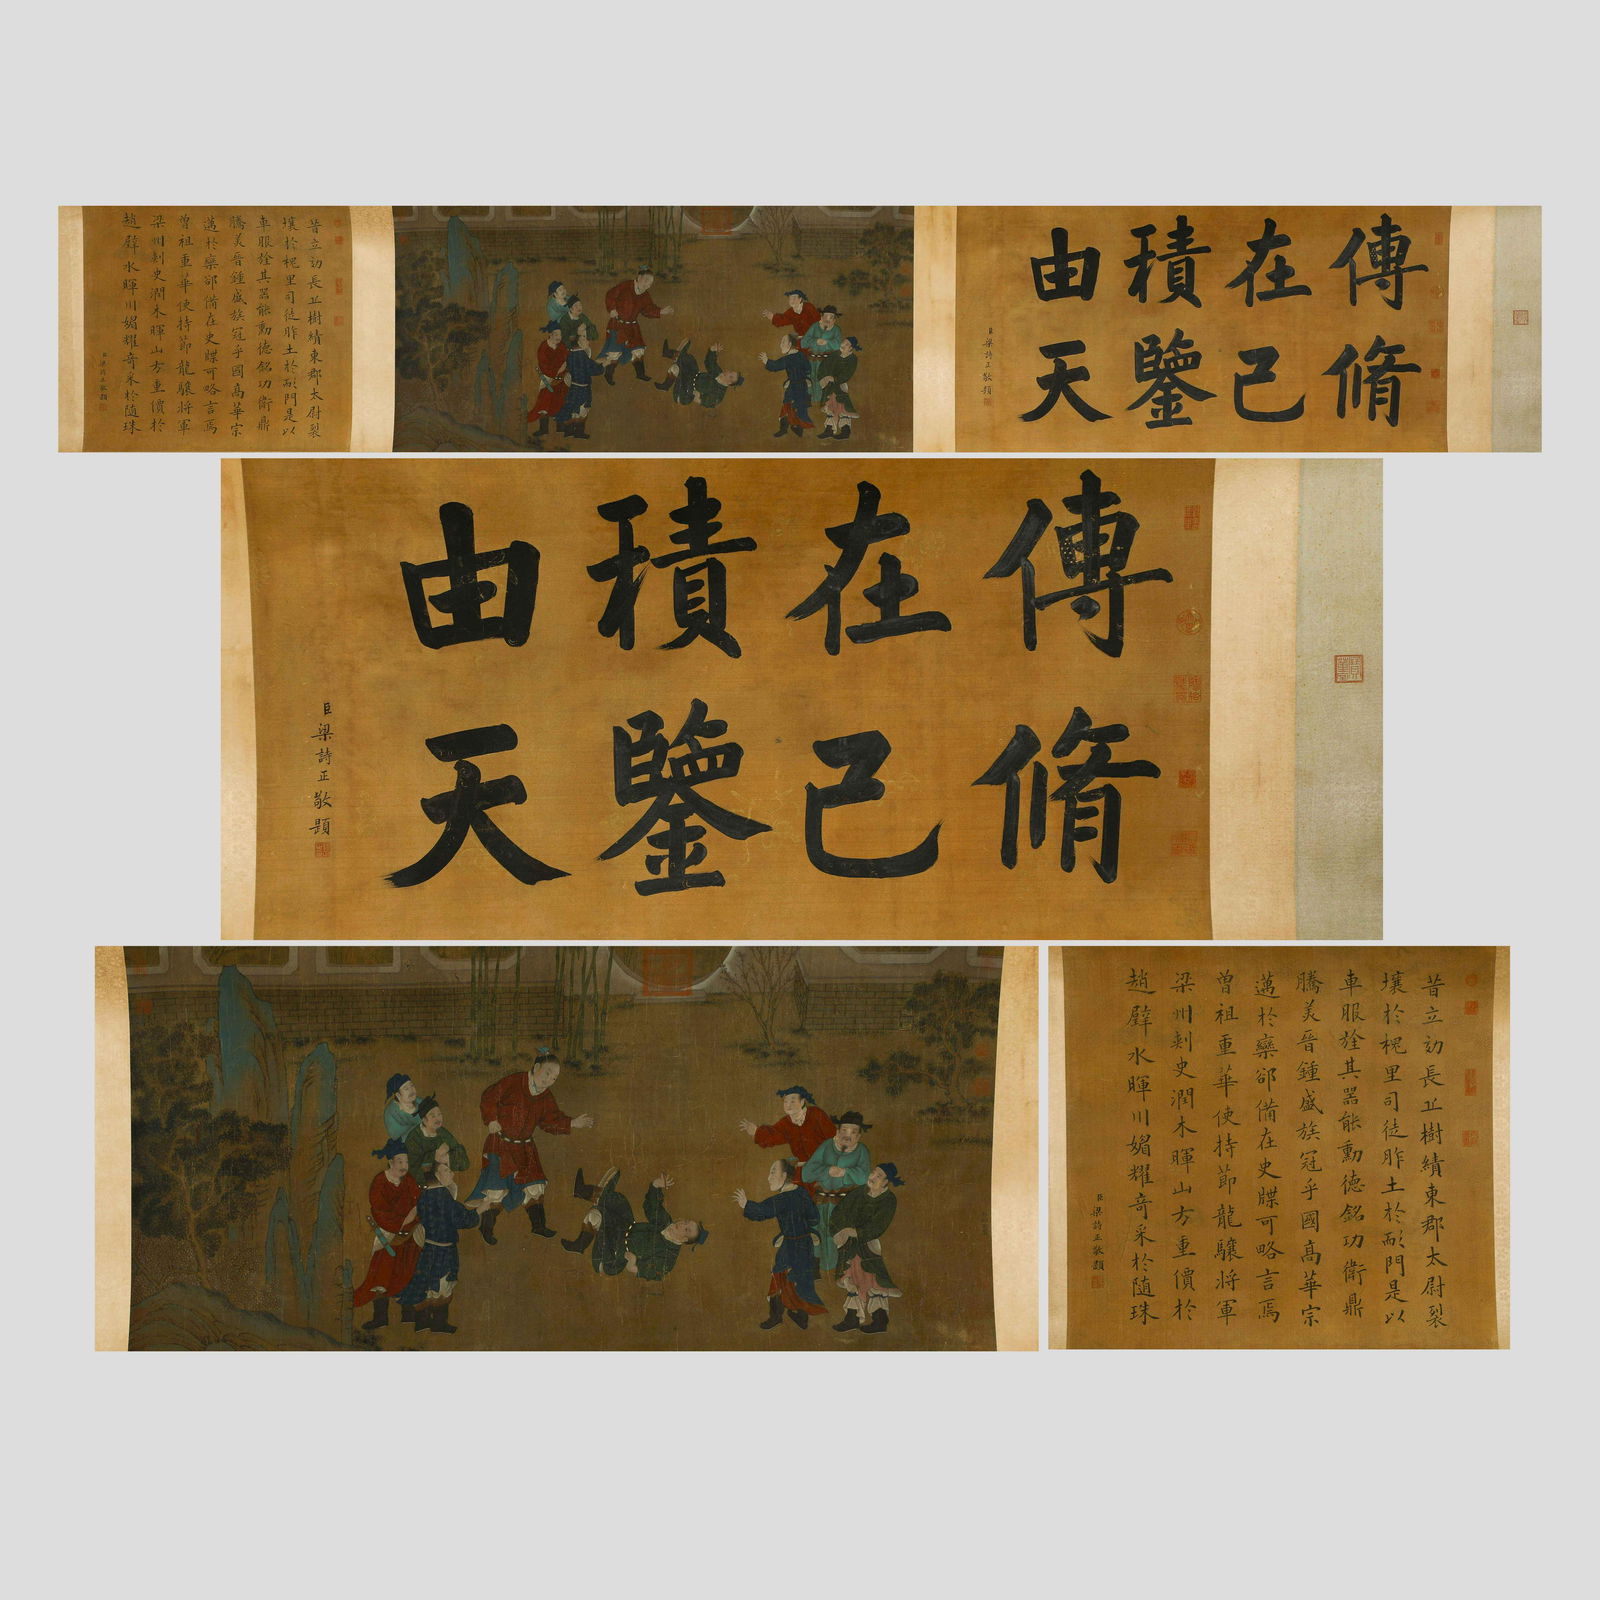 傳脩
在己
積鑒
由天
臣梁詩正敬題
昔立効長丘樹績東郡太尉裂
壤於槐里司徒胙土於耏門是以
車服旌其器能勳德銘功衛鼎
騰美晉鍾盛族冠乎國高華宗
邁於欒郤備在史牒可略言焉
曾祖重華使持節龍驤將軍
梁州刺史潤木暉山方重價於
趙璧水暉川媚耀竒采於隨珠
臣梁詩正敬題
傳脩
在己
積鑒
由天
臣梁詩正敬題
昔立効長丘樹績東郡太尉裂
壤於槐里司徒胙土於耏門是以
車服旌其器能勳德銘功衛鼎
騰美晉鍾盛族冠乎國高華宗
邁於欒郤備在史牒可略言焉
曾祖重華使持節龍驤將軍
梁州刺史潤木暉山方重價於
趙璧水暉川媚耀竒采於隨珠
臣梁詩正敬題